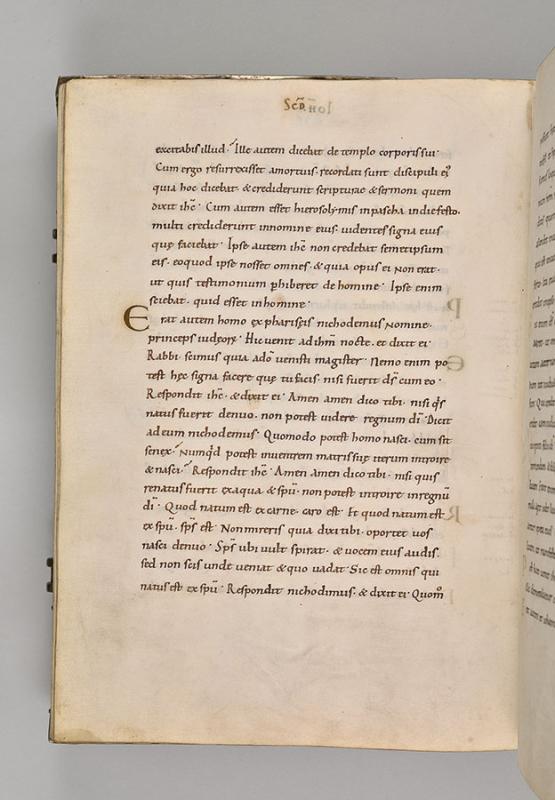 Scd. Ioh
excitabis illud. Ille autem dicebat de templo corporis sui.
Cum ergo resurrexisset a mortuis. recordati sunt discipuli ei᷒
quia hoc dicebat. & crediderunt scripturae & sermoni quem
dixit ihc̄. Cum autem esset hierosolymis in pascha in die festo.
multi crediderunt in nomine eius. videntes signa eius
quę faciebat. Ipse autem ihc̄ non credebat semetipsum
eis. eo quod ipse nosset omnes. & quia opus ei non erat.
ut quis testimonium phiberet de homine. Ipse enim
sciebat. quid esset in homine.
Erat autem homo ex phariseis nichodemus nomine.
princeps iudęorꝝ. Hic venit ad ihm̄ nocte. et dixit ei.
Rabbi. scimus quia a do̅ venisti magister. Nemo enim po
test hęc signa facere quę tu facis. nisi fuerit ds̄ cum eo.
Respondit ihc̄. & dixit ei. Amen amen dico tibi. nisi qs̄
natus fuerit denuo. non potest videre regnum dī. Dicit
ad eum nichodemus. Quomodo potest homo nasci. cum sit
senex. Numqd potest in ventrem matris suę iterum introire
& nasci. Respondit ihc̄. Amen amen dico tibi. nisi quis
renatus fuerit ex aqua & spū. non potest introire in regnū
dī. Quod natum est ex carne. caro est. Et quod natum est
ex spū. sps̄ est. Non mireris quia dixi tibi. oportet vos
nasci denuo. Sps̄ ubi vult spirat. & vocem eius audis.
sed non scis unde veniat & quo vadat. Sic est omnis qui
natus est ex spū. Respondit nichodimus. & dixit ei. Quom̊